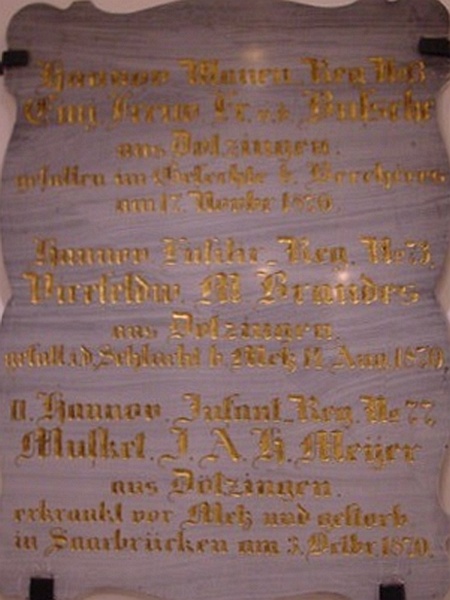 Hannov. Ulanen Reg. No 13.
Einj. Freiw. Fr. v. d. Busche
aus Dötzingen.
gefallen im Gefechte b. Berchères
am 17. Novbr 1870.
Hannov. Füsilir. Reg. No 73.
Vicefeldw. M. Brandes
aus Dötzingen.
gefall. i. d. Schlacht b. Metz 12. Aug. 1870.
II. Hannov. Infant. Reg. No 77.
Musket. J. A. H. Meijer
aus Dötzingen.
erkrankt vor Metz und gestorb.
in Saarbrücken am 3. Octbr. 1870.